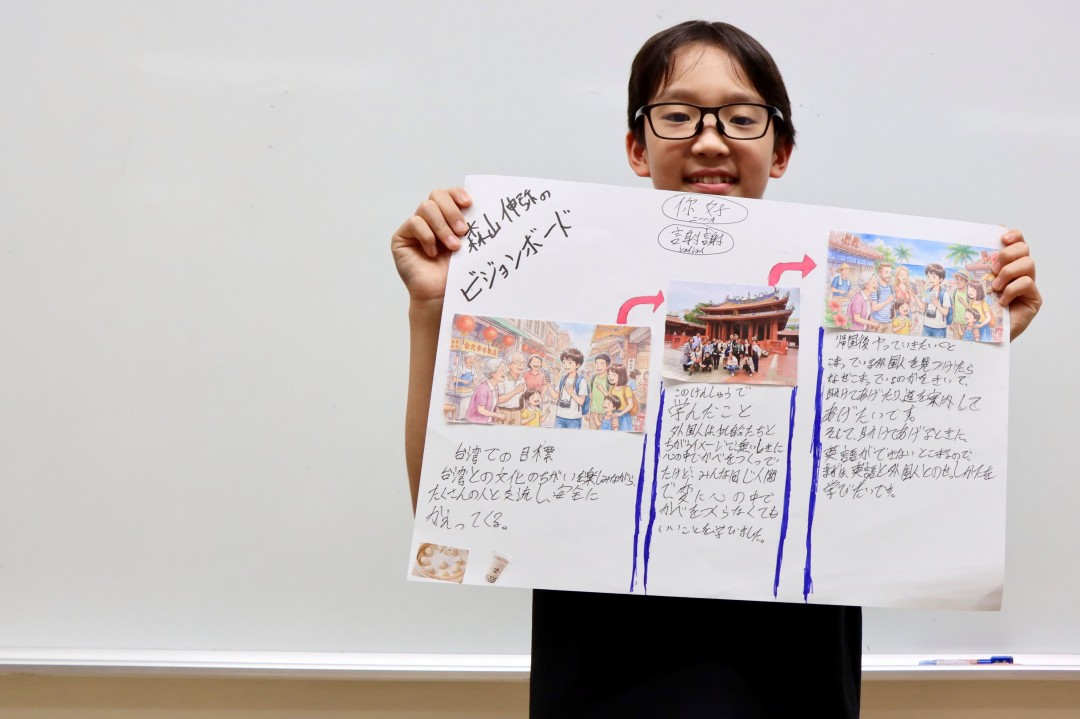 森山伸弥の
ビジョンボード
你好
ニーハオ
謝謝
台湾での目標
台湾との文化のちがいを楽しみながら、
たくさんの人と交流し、安全に
かえってくる。
このけんしゅうで
学んだこと
外国人は私たちと
ちがうイメージで無いしきに
心の中でかべをつくって
たけど、みんな同じ人間
で、変に心の中で
かべをつくらなくても
いいことを学びました。
帰国後やっていきたいこと
こまっている外国人を見つけたら
なぜこまっているのかをきいて、
助けてあげたり、道を案内して
あげたいです。
そして、助けてあげるときに、
英語ができないとこまるので
まずは、英語と外国人とのせっしかたを
学びたいです。